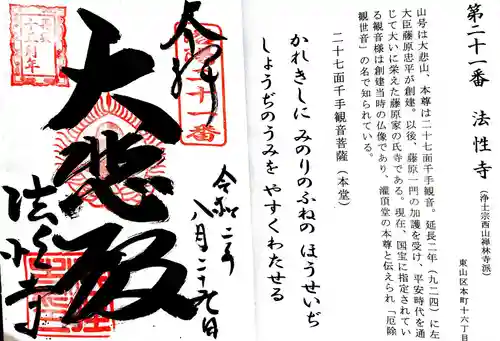 第二十一番　法性寺
（浄土宗西山禅林寺派）
東山区本町十六丁目
山号は大悲山、本尊は二十七面千手観音。延長二年（九二四）に左
大臣藤原忠平が創建。以後、藤原一門の加護を受け、平安時代を通
じて大いに栄えた藤原家の氏寺である。現在、国宝に指定されてい
る観音様は創建当時の仏像であり、灌頂堂の本尊と伝えられ「厄除
観世音」の名で知られている。
二十七面千手観音菩薩（本堂）
かれきしに みのりのふねの ほうせいぢ
しょうぢのうみを やすくわたせる
奉拝
第二十一番
令和二年
八月二十九日
大悲殿
法性寺